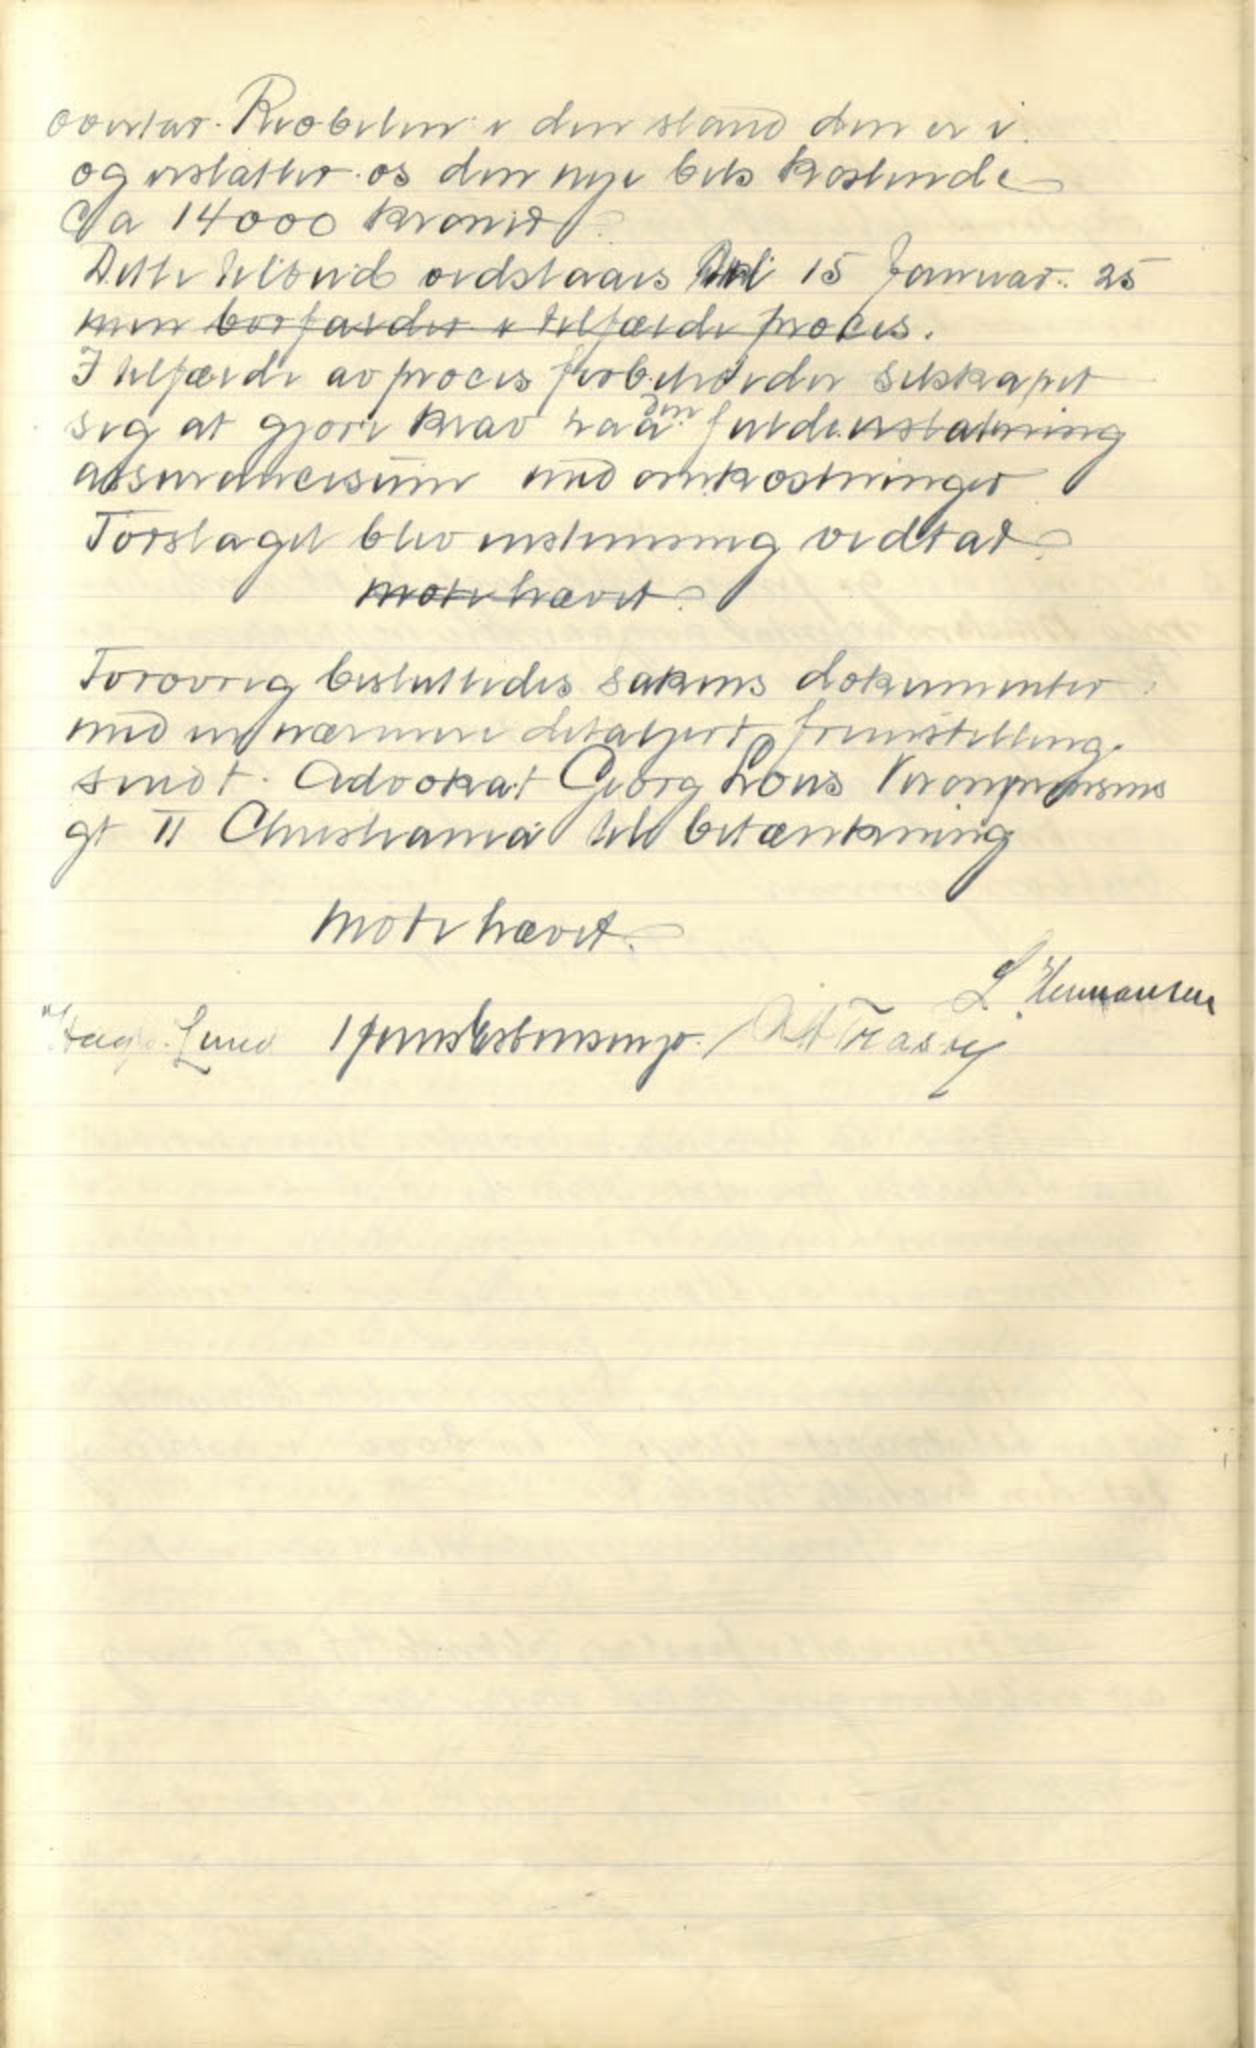 overtar Reobilen i den stand den er i
og erstatter os den nye bils kostende
Ca 14000 kroner.
Dette tilbud vedstaaes til 15 Januar. 25
men borfalder i tilfælde proces.
I tilfælde av proces forbeholder selskapet
sig at gjøre krav paa den fulde erstatning
assurancesum med omkostninger
Forslaget blev enstemmig vedtat
Møte hævet.
Forøvrig besluttedes sakens dokumenter
med en nærmere detaljert fremstilling
sendt Advokat Georg Lous Kronprinsens
gt 11 Christiania til betænkning
Møte hævet.
L. Hermansen
Hagb. Lund Jens Esbensen jr.